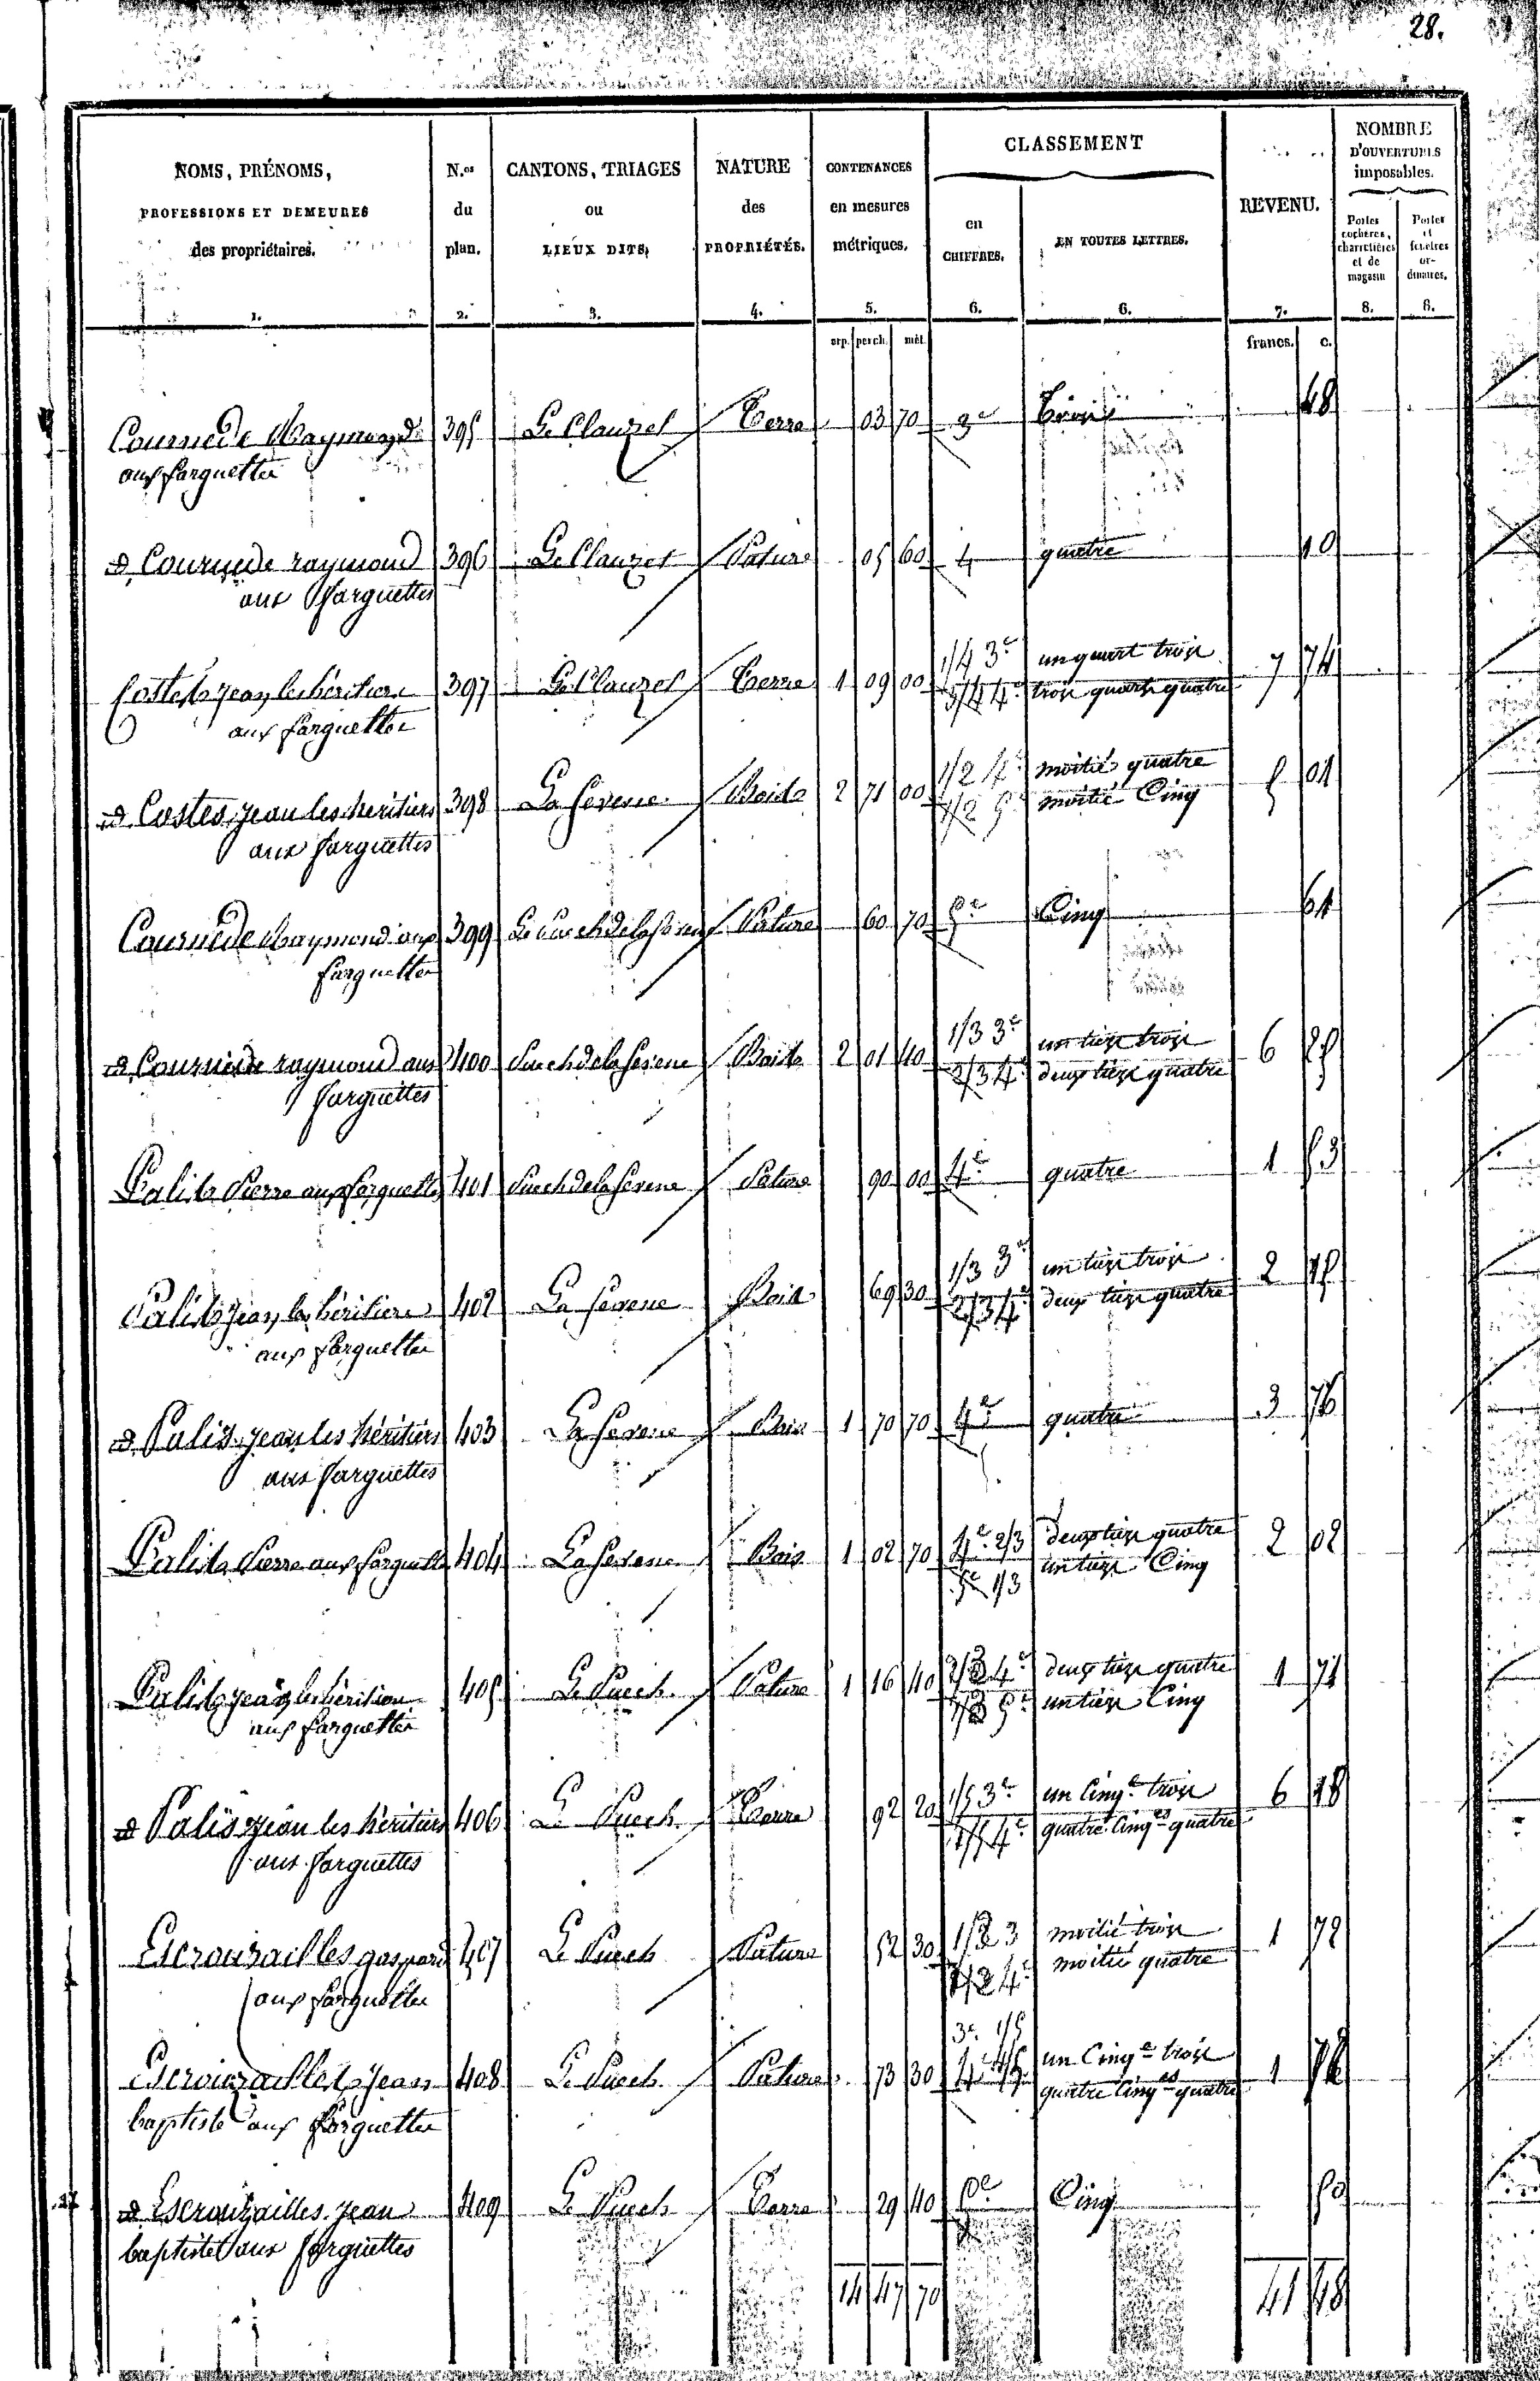 28.
NOMS, PRÉNOMS, PROFESSIONS ET DEMEURES des propriétaires. 1.
N.os du plan. 2.
CANTONS, TRIAGES ou LIEUX DITS, 3.
NATURE des PROPRIÉTÉS. 4.
CONTENANCES en mesures métriques, 5.
CLASSEMENT
en CHIFFRES. 6.
EN TOUTES LETTRES. 6.
REVENU. 7.
NOMBRE D'OUVERTURES imposables.
Portes cochères, charretières et de magasin 8.
Portes et fenêtres ordinaires. 8.
arp. perch. mèt. francs. c.
Cournede Raymond 395 Le Clauzel Terre 03 70 3e trois 48
aux farguettes
Cournede raymond 396 Le Clauzet Pature 05 60 4 quatre 10
aux farguettes
Costes jean les héritiers 397 Le Clauzel Terre 1 09 00 1/4 3e un quart trois 7 74
aux farguettes 3/4 4e trois quarts quatre
Costes jean les heritiers 398 La Serene Bois 2 71 00 1/2 4e moitié quatre 5 01
aux farguettes 1/2 5e moitié Cinq
Cournede Raymond aux 399 Le Puech de la Serene Pature 60 70 5e Cinq 61
farguettes
Cournede raymond aux 400 Puech de la Serene Bois 2 01 40 1/3 3e un tiers trois 6 25
farguettes 2/3 4e deux tiers quatre
Palis Pierre aux farguettes 401 Puech de la Serene Pature 90 00 4e quatre 1 53
Palis jean les héritiers 402 La Serene Bois 69 30 1/3 3e un tiers trois 2 15
aux farguettes 2/3 4e deux tiers quatre
Palis jean les héritiers 403 La Serene Bois 1 70 70 4e quatre 3 76
aux farguettes
Palis Pierre aux farguettes 404 La Serene Bois 1 02 70 4e 2/3 deux tiers quatre 2 02
5e 1/3 un tiers Cinq
Palis jean les héritiers 405 Le Puech Pature 1 16 40 2/3 4e deux tiers quatre 1 71
aux farguettes 1/3 5e un tiers Cinq
Palis jean les héritiers 406 Le Puech Terre 92 20 1/5 3e un Cinqe trois 6 18
aux farguettes 4/5 4e quatre Cinqes quatre
Escrouzailles gaspard 407 Le Puech Pature 52 30 1/2 3 moitié trois 1 72
aux farguettes 1/2 4e moitié quatre
Escrouzailles Jean 408 Le Puech Pature 73 30 3e 1/5 un Cinqe trois 1
baptiste aux farguettes 4e 4/5 quatre Cinqes quatre
Escrouzailles jean 409 Le Puech Terre 29 40 5e Cinq 50
baptiste aux farguettes
14 47 70 41 48